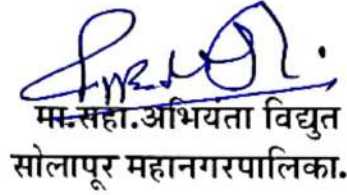 मा.सहा.अभियंता विद्युत
सोलापूर महानगरपालिका.